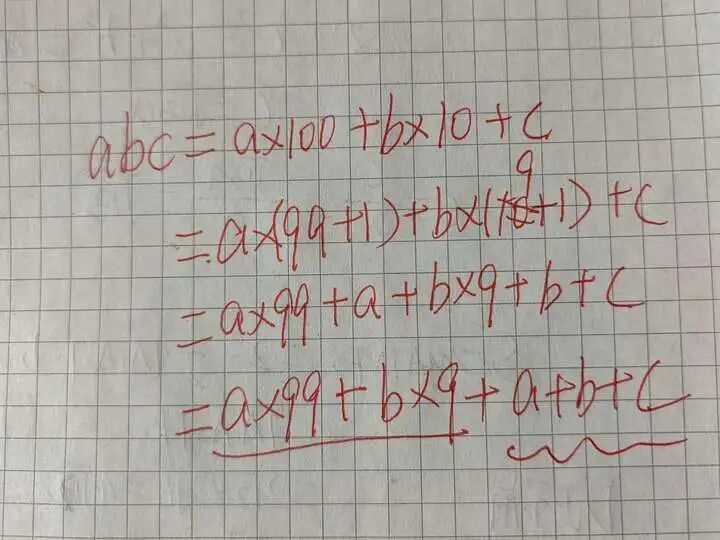 abc = a×100 + b×10 + c
= a×(99+1) + b×(9+1) + c
= a×99 + a + b×9 + b + c
= a×99 + b×9 + a+b+c